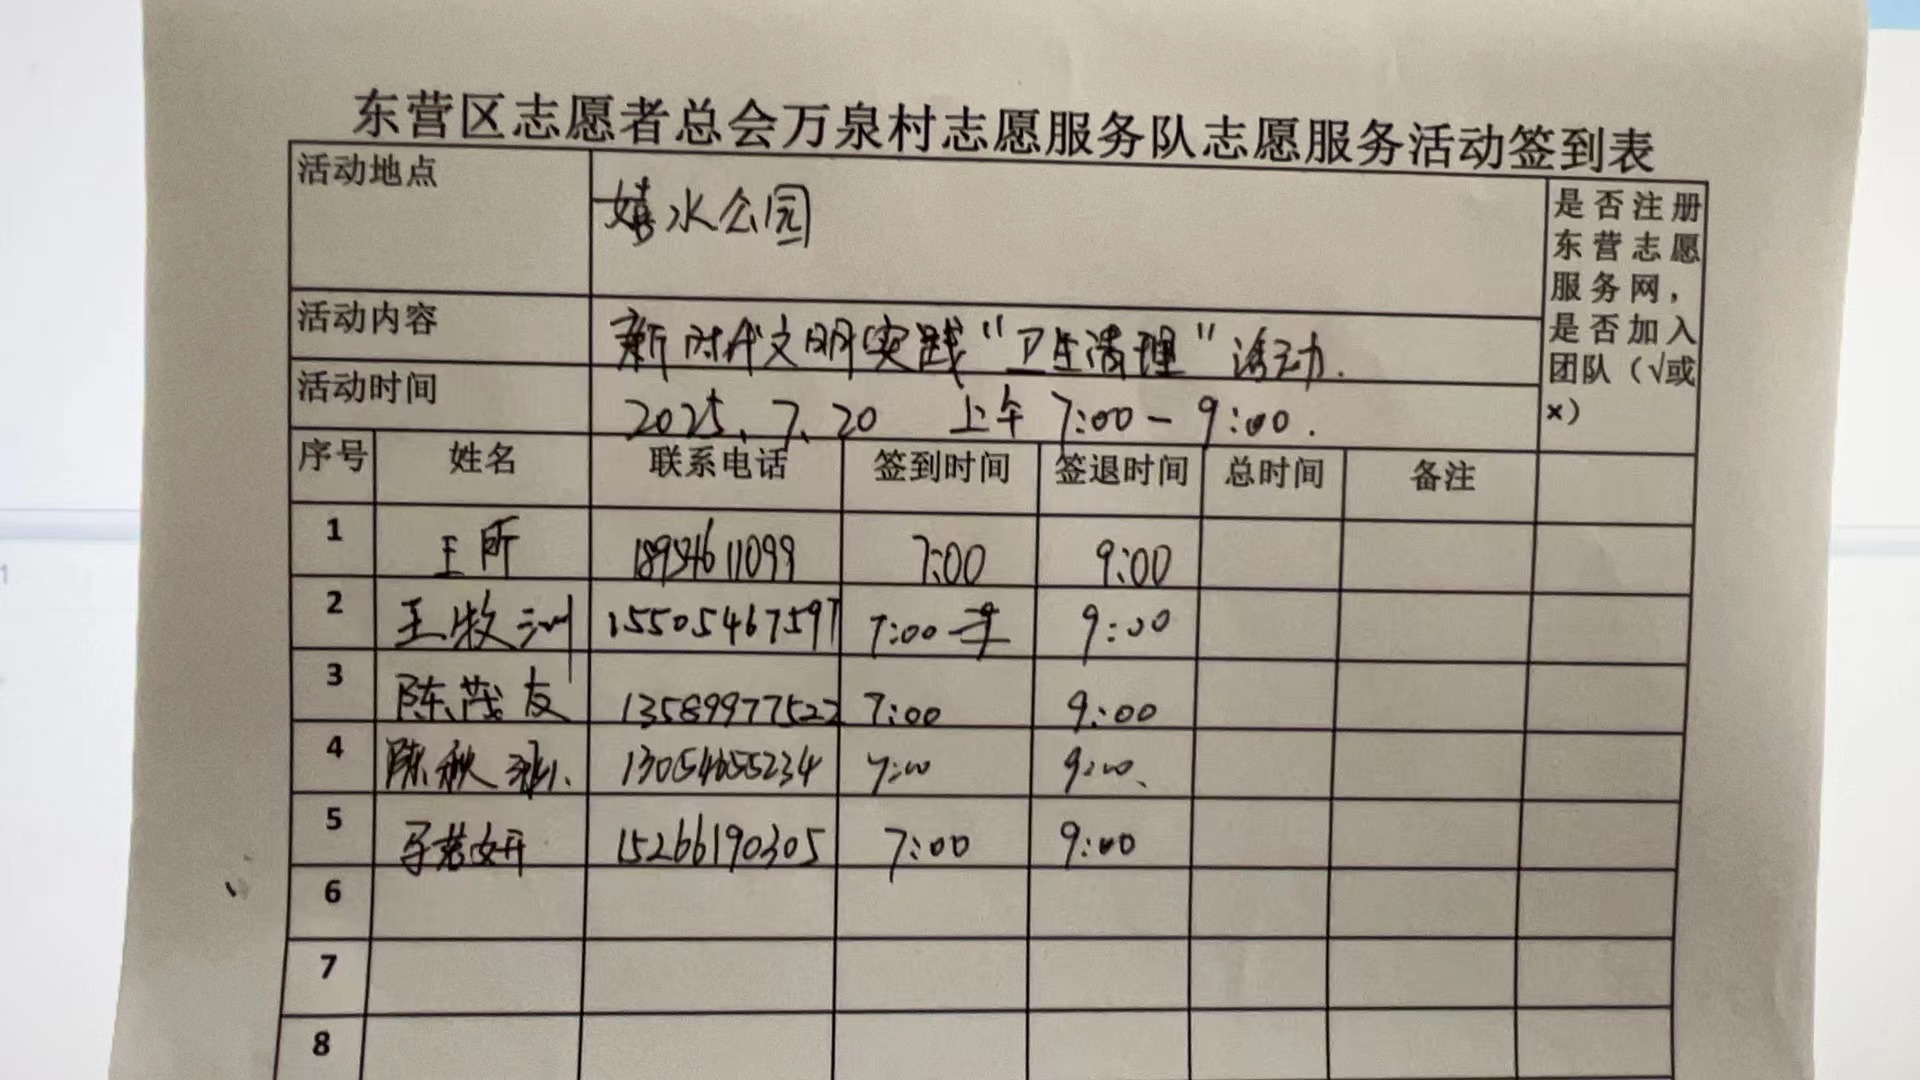 东营区志愿者总会万泉村志愿服务队志愿服务活动签到表
活动地点 嬉水公园
是否注册东营志愿服务网，是否加入团队（√或×）
活动内容 新时代文明实践“卫生清理”活动.
活动时间 2025、7、20 上午 7:00-9:00.
序号 姓名 联系电话 签到时间 签退时间 总时间 备注
1 王所 18954611099 7:00 9:00
2 王牧 15505467597 7:00 9:00
3 陈茂友 13589977522 7:00 9:00
4 陈秋 13054655234 7:00 9:00、
5 15266190305 7:00 9:00
6
7
8